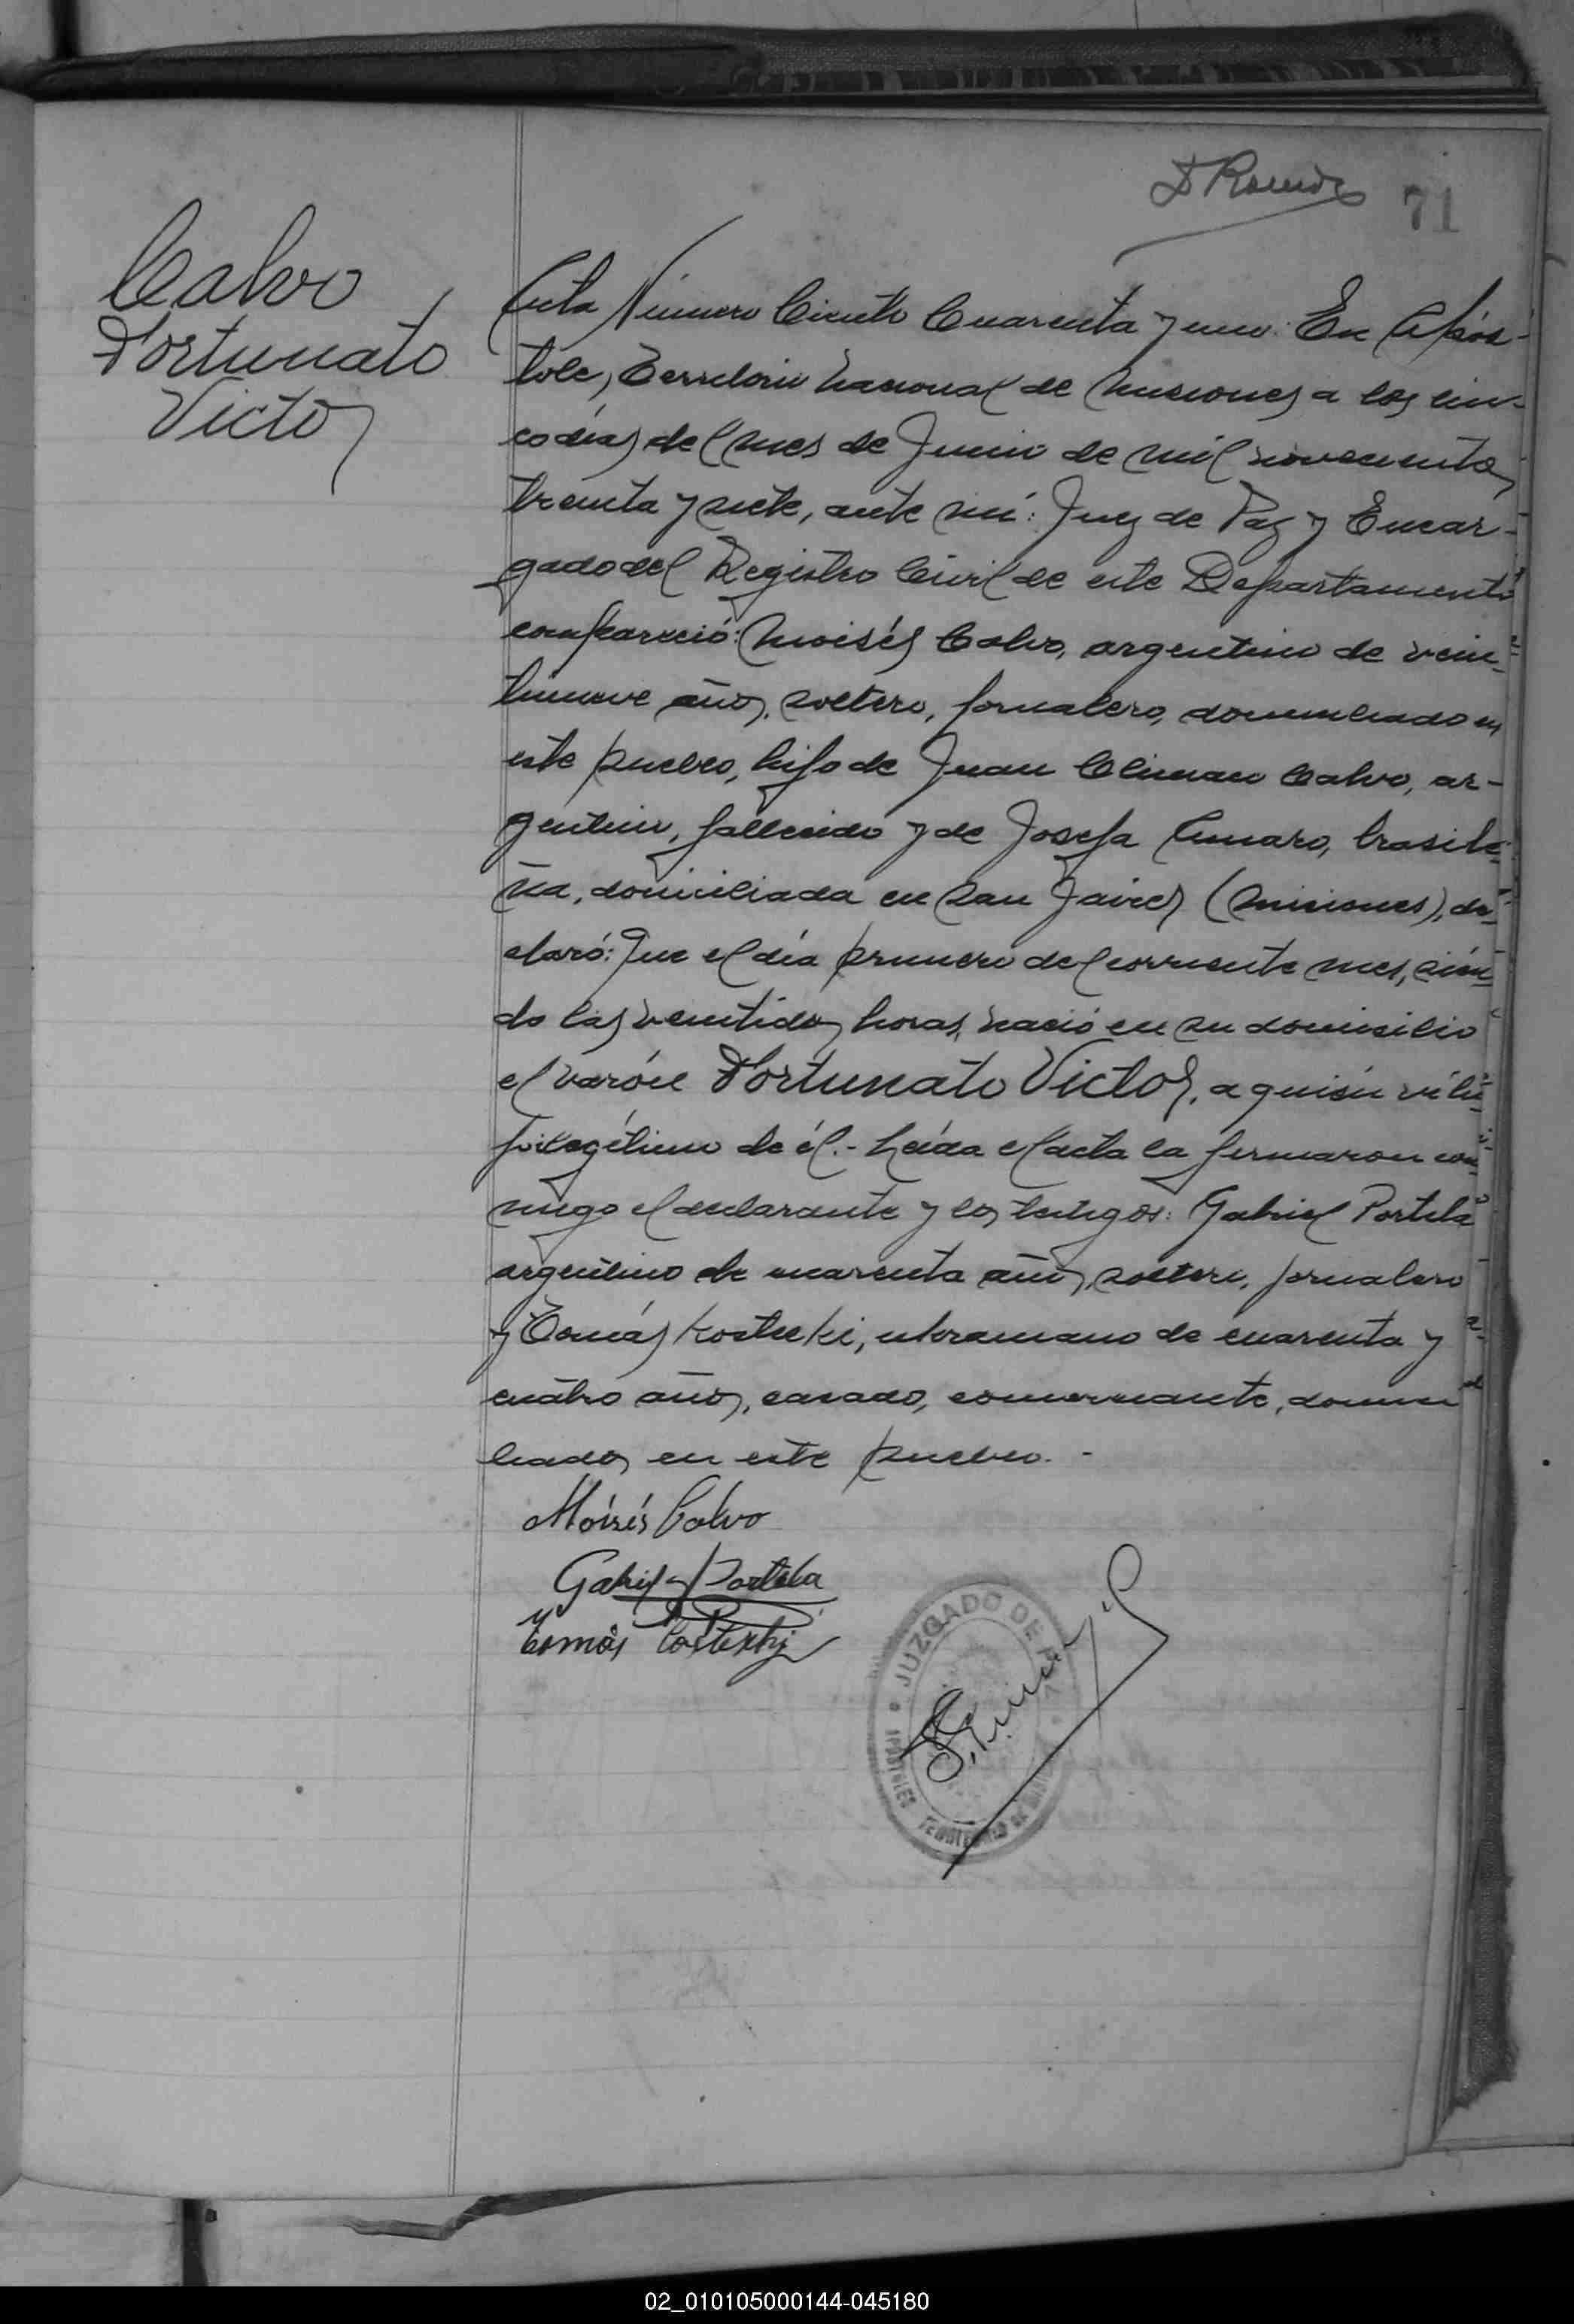 71
Calvo
Fortunato
Victor
Acta Número Ciento Cuarenta y uno: En Após-
toles, Territorio Nacional de Misiones a los cin-
co días del mes de Junio de mil novecientos
treinta y siete, ante mí: Juez de Paz y Encar-
gado del Registro Civil de este Departamento
compareció: Moisés Calvo, argentino de vein-
tinueve años, soltero, jornalero, domiciliado en
este pueblo, hijo de Juan Climaco Calvo, ar-
gentino, fallecido y de Josefa Amaro, brasile-
ña, domiciliada en San Javier (Misiones), de-
claró: Que el día primero del corriente mes, sien-
do las veintidos horas, nació en su domicilio
el varón Fortunato Victor, a quien vi hi-
jo ilegítimo de él.- Leída el acta la firmaron con-
migo el declarante y los testigos: Gabriel Portela
argentino de cuarenta años, soltero, jornalero
y Tomás Kostecki, ukraniano de cuarenta y
cuatro años, casado, comerciante, domici
liados en este pueblo. -
Moisés Calvo
Gabriel Portela
Tomás
JUZGADO DE PAZ
APOSTOLES TERRITORIO DE MISIONES
02_010105000144-045180